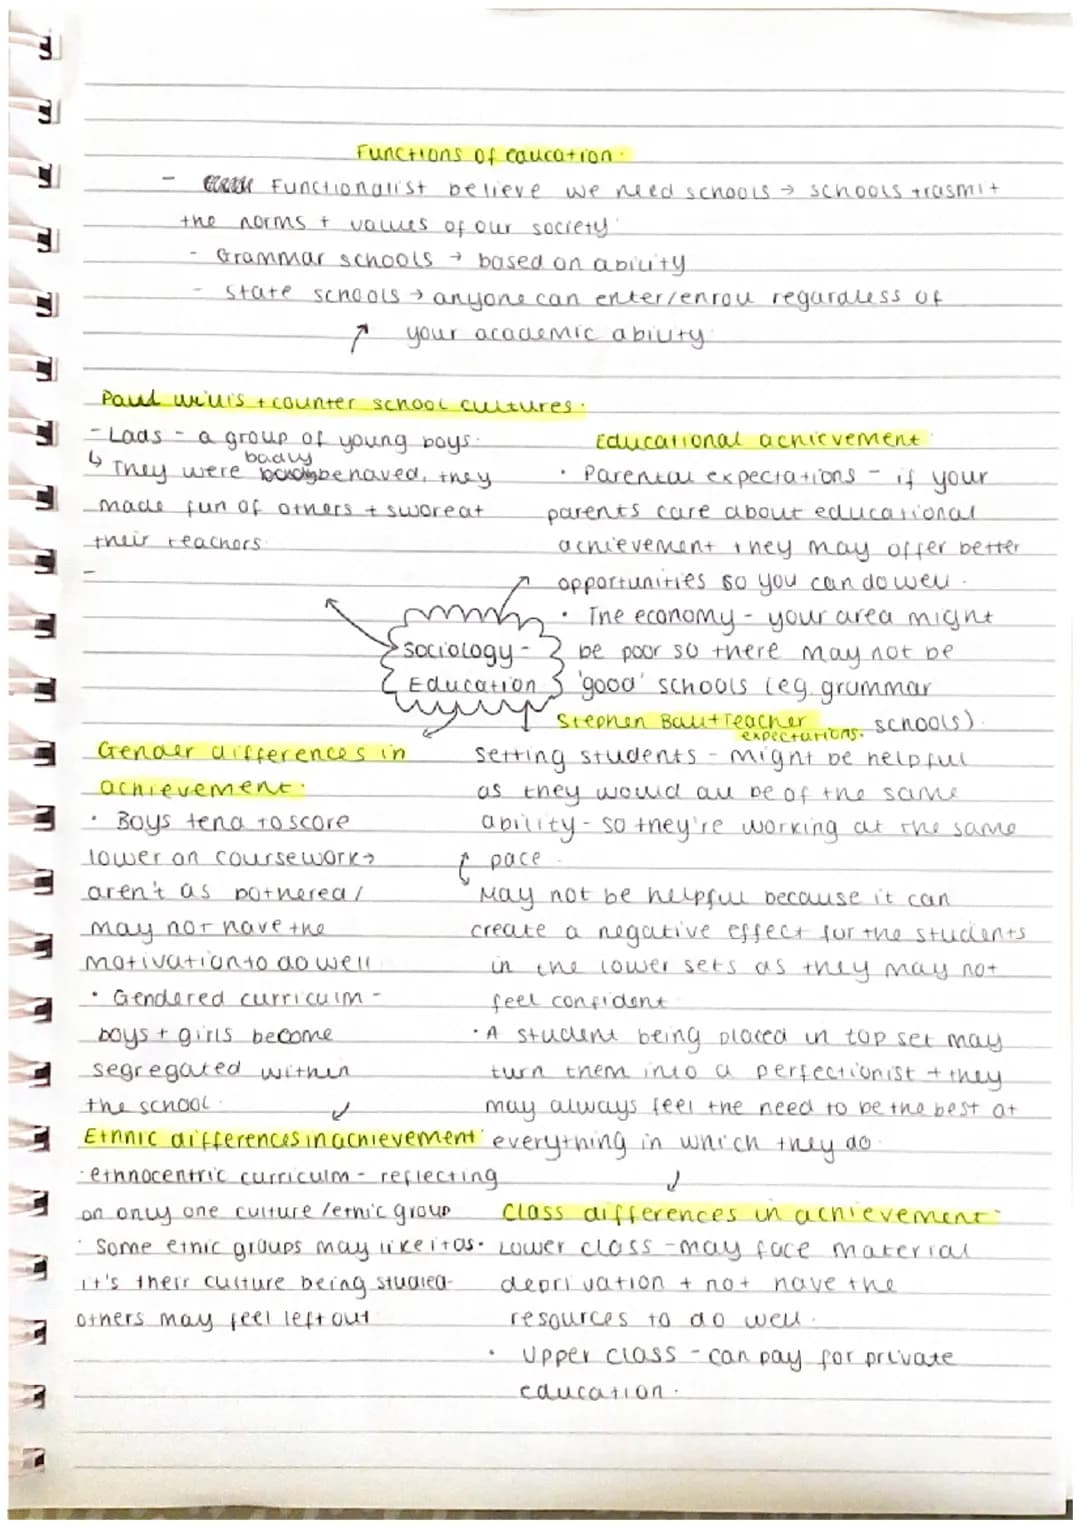 Functions of education.
- Functionalist believe we need schools → schools trasmit
the norms + values of our society
- Grammar schools → based on ability
- state schools → anyone can enter/enroll regardless of
your academic ability
Paul Willis + counter school cultures.
- Lads - a group of young boys.
↳ They were badly behaved, they
made fun of others + swore at
their teachers
-
Educational achievement
• Parental expectations - if your
parents care about educational
achievement they may offer better
opportunities so you can do well.
• The economy - your area might
be poor so there may not be
'good' schools (eg. grammar
schools).
Sociology -
Education
Stephen Ball + Teacher
expectations.
setting students - might be helpful
as they would all be of the same
ability - so they're working at the same
pace.
May not be helpful because it can
create a negative effect for the students
in the lower sets as they may not
feel confident
• A student being placed in top set may
turn them into a perfectionist + they
may always feel the need to be the best at
everything in which they do.
Gender differences in
achievement.
• Boys tend to score
lower on coursework →
aren't as bothered /
may not have the
motivation to do well
• Gendered curriculm -
boys + girls become
segregated within
the school.
Ethnic differences in achievement
• ethnocentric curriculm - reflecting
on only one culture /etnic group
• Some etnic groups may like it as
it's their culture being studied-
others may feel left out
Class differences in achievement.
• Lower class - may face material
deprivation + not have the
resources to do well.
• Upper class - can pay for private
education.